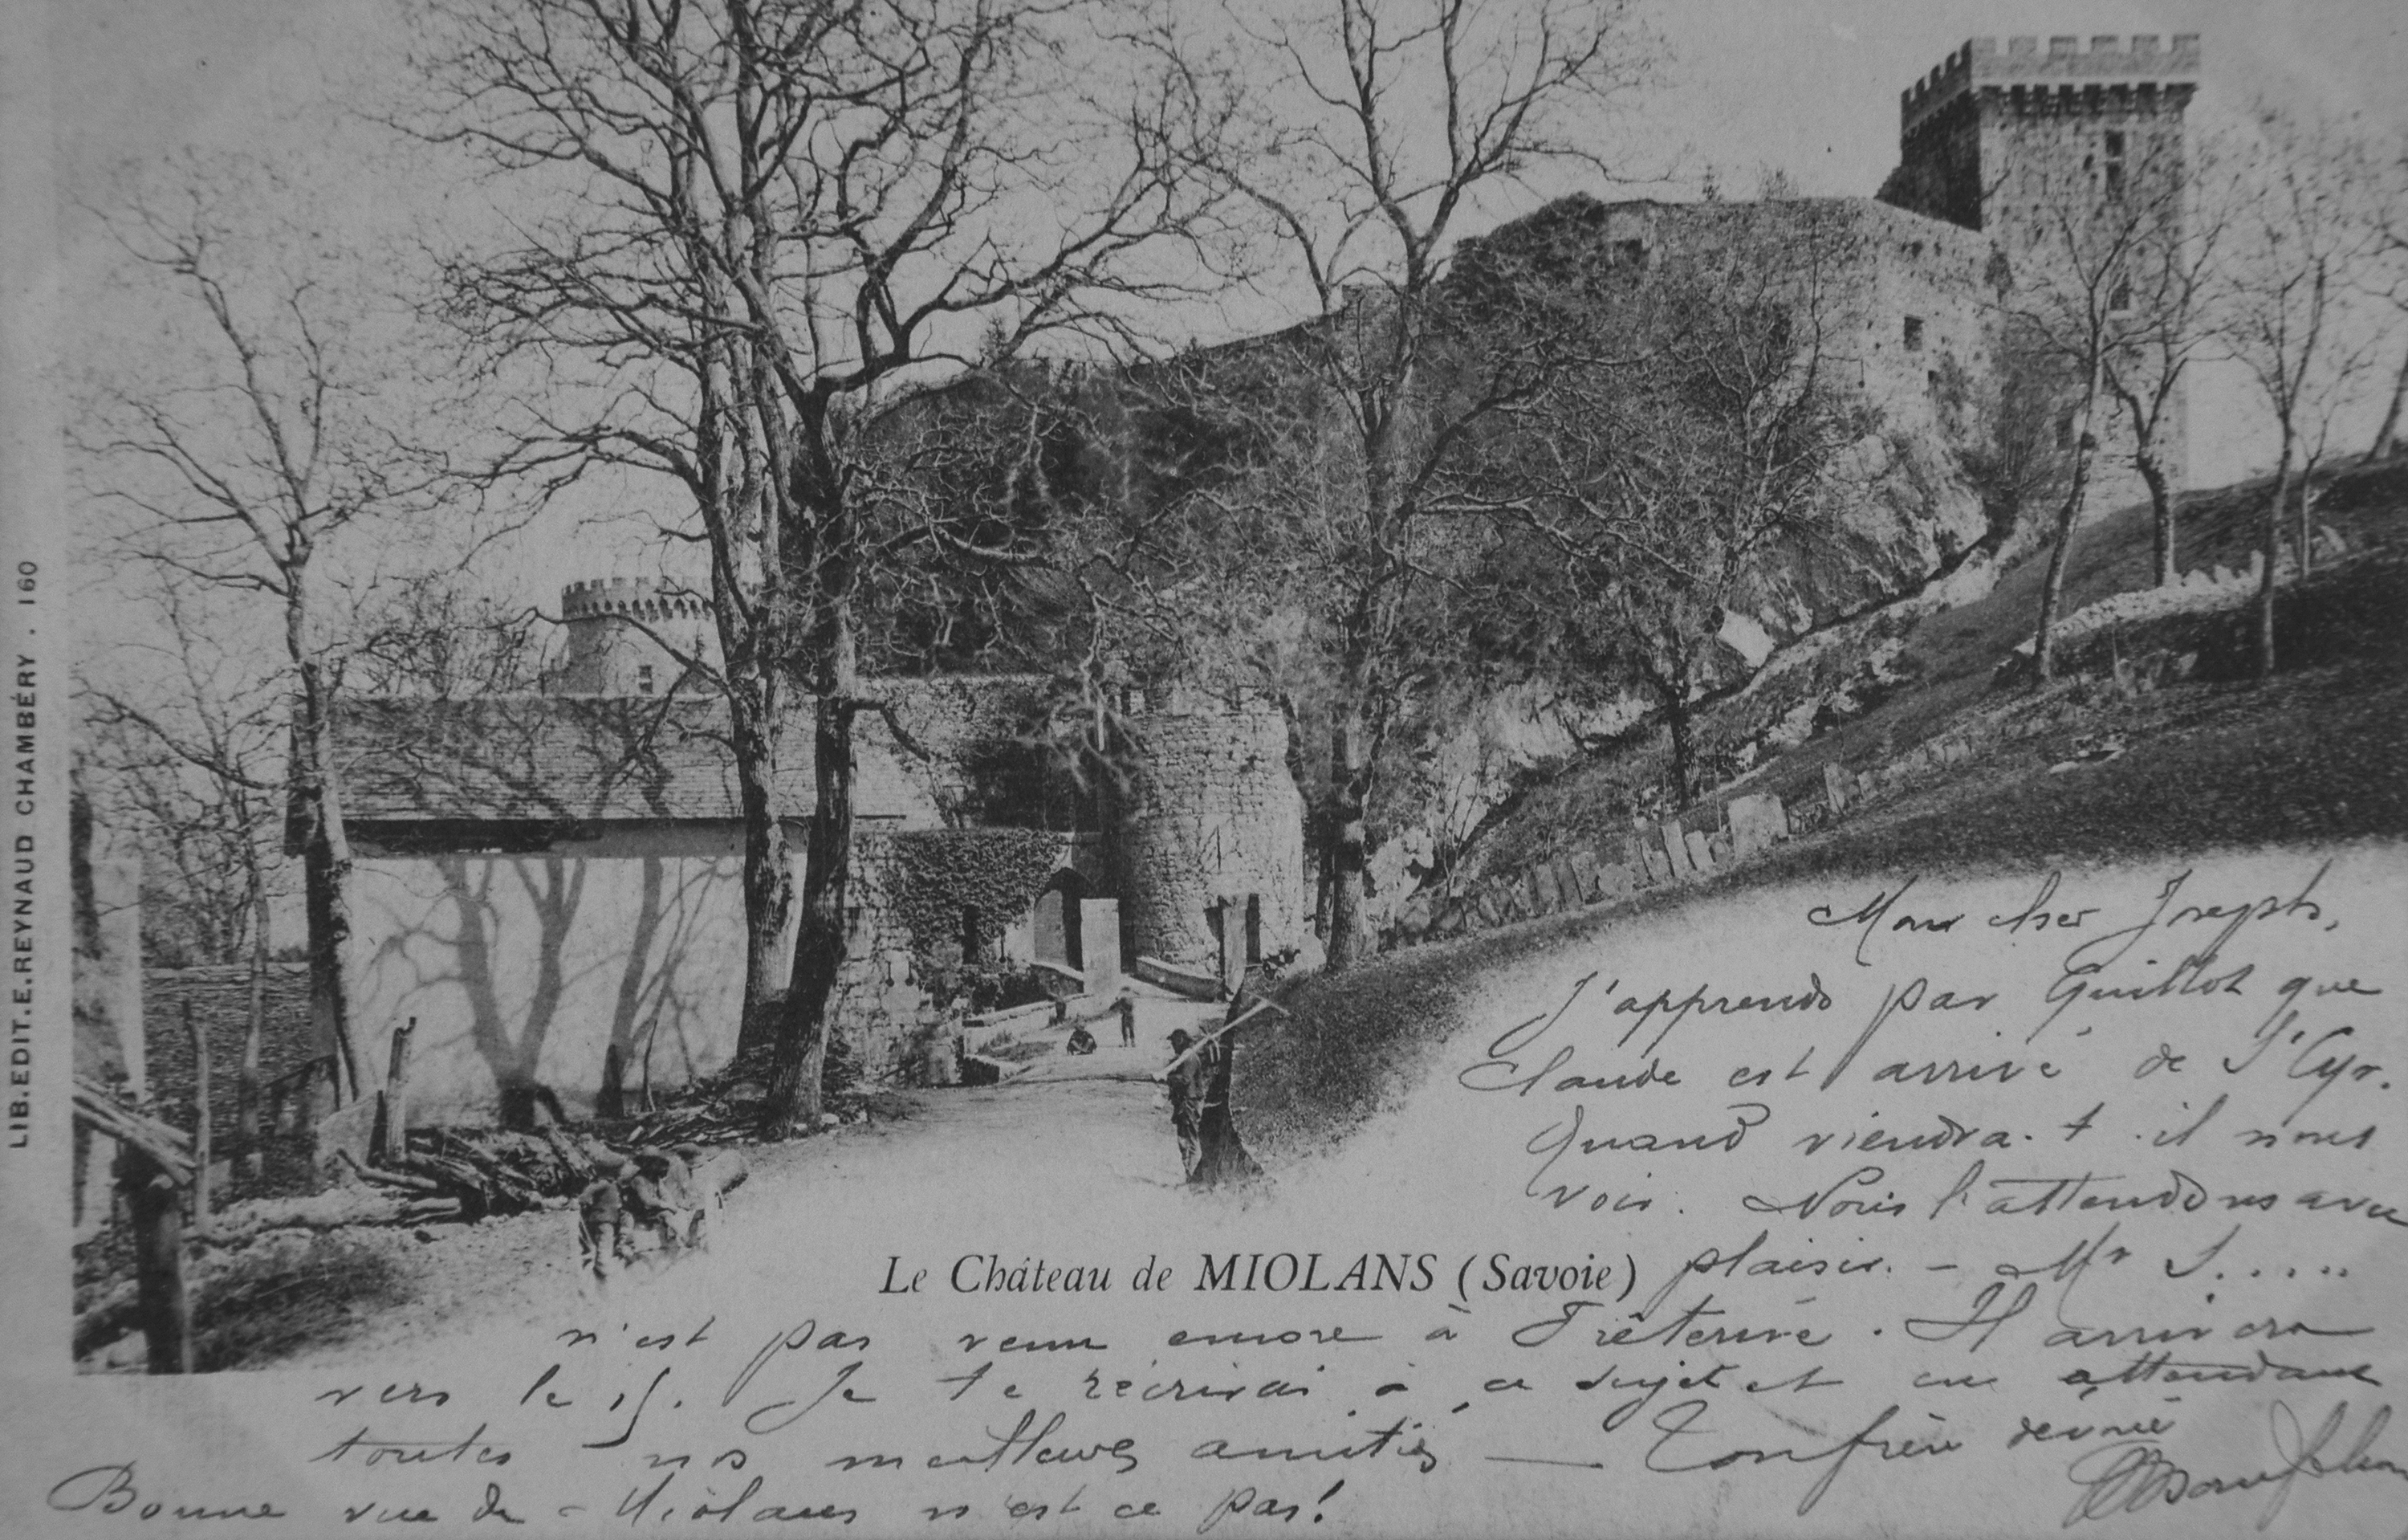 LIB. EDIT. E. REYNAUD CHAMBÉRY . 160
Mon cher Joseph,
J'apprends par Guillot que
Claude est arrivé de St Cyr.
Quand viendra-t-il nous
voir. Nous l'attendons avec
Le Château de MIOLANS (Savoie)
plaisir. - Mr S.....
n'est pas venu encore à . Il arrivera
vers le 15. Je te récrirai à ce sujet et en attendant
toutes nos meilleures amitiés — Ton frère dévoué
Bonne vue de Miolans n'est ce pas!